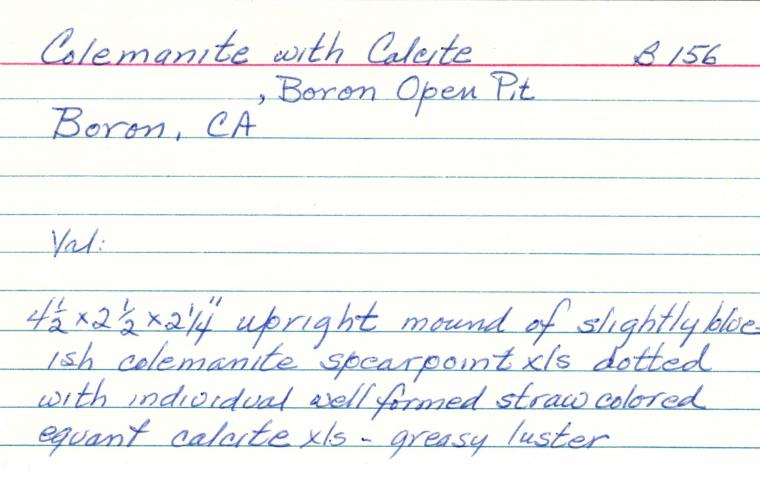 Colemanite with Calcite B 156
, Boron Open Pit
Boron, CA
Val:
4½ x 2½ x 2¼" upright mound of slightly blue-
ish colemanite spearpoint xls dotted
with individual well formed straw colored
equant calcite xls - greasy luster